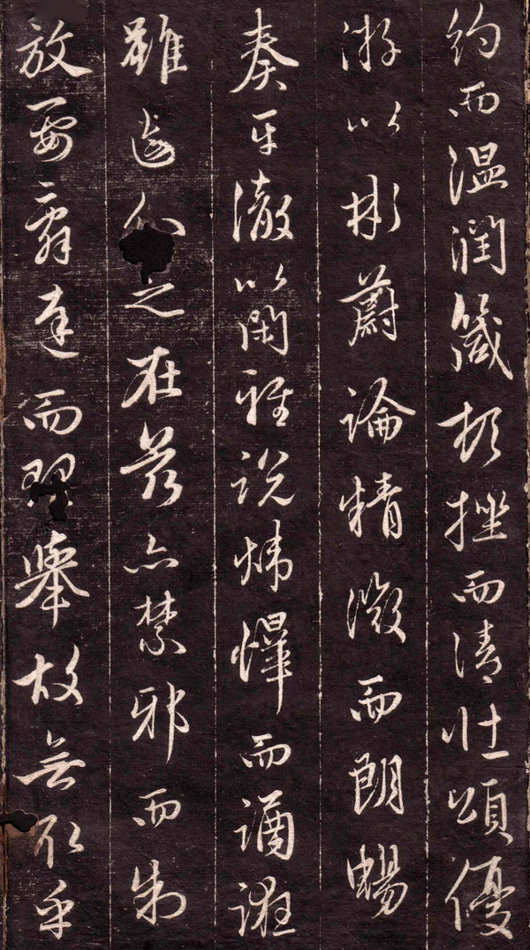 約而温潤箴頓挫而清壯頌優
游以彬蔚論精微而朗暢
奏平徹以閑雅說煒曄而譎誑
雖區分之在茲亦禁邪而制
放要辭達而理舉故無取乎